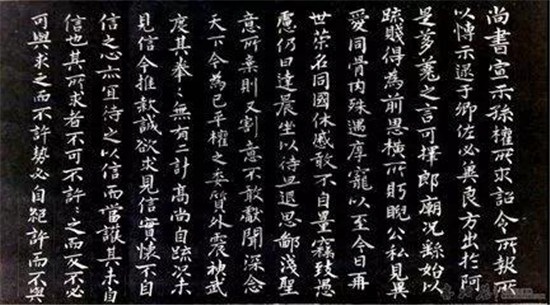 尚書宣示孫權所求詔令所報所
以博示逮于卿佐必冀良方出於阿
是芻蕘之言可擇郎廟況繇始以
疏賤得為前恩橫所盻睨公私見異
愛同骨肉殊遇厚寵以至今日再
世榮名同國休慼敢不自量竊致愚
慮仍日達晨坐以待旦退思鄙淺聖
意所棄則又割意不敢獻聞深念
天下今為已平權之委質外震神武
度其拳〻無有二計高尚自疏況未
見信今推款誠欲求見信實懷不自
信之心亦宜待之以信而當護其未自
信也其所求者不可不許〻之而反不必
可與求之而不許勢必自絕許而不與